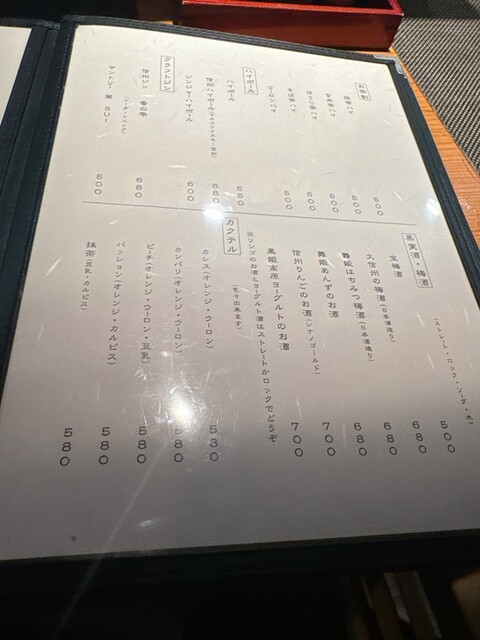 お茶割
抹茶ハイ 500
玄米茶ハイ 500
ほうじ茶ハイ 500
そば茶ハイ 500
ウーロンハイ 500
ハイボール
ハイボール 580
信州ハイボール 680
ジンジャーハイボール 600
クラフトジン
信州ジン 香の雫 680
サントリー 翠 SUI 500
果実酒・梅酒
(ストレート・ロック・ソーダ・水)
宝梅酒 500
大信州の梅酒(日本酒造り) 680
舞姫はちみつ梅酒(日本酒造り) 680
舞姫あんずのお酒 680
信州りんごのお酒(シナノゴールド) 700
黒姫高原ヨーグルトのお酒 700
※リンゴのお酒とヨーグルト酒はストレートかロックでどうぞ
カクテル
(色々出来ます)
カシス(オレンジ・ウーロン) 580
カンパリ(オレンジ・ウーロン) 580
ピーチ(オレンジ・ウーロン・豆乳) 580
パッション(オレンジ・カルピス) 580
抹茶(豆乳・カルピス) 580